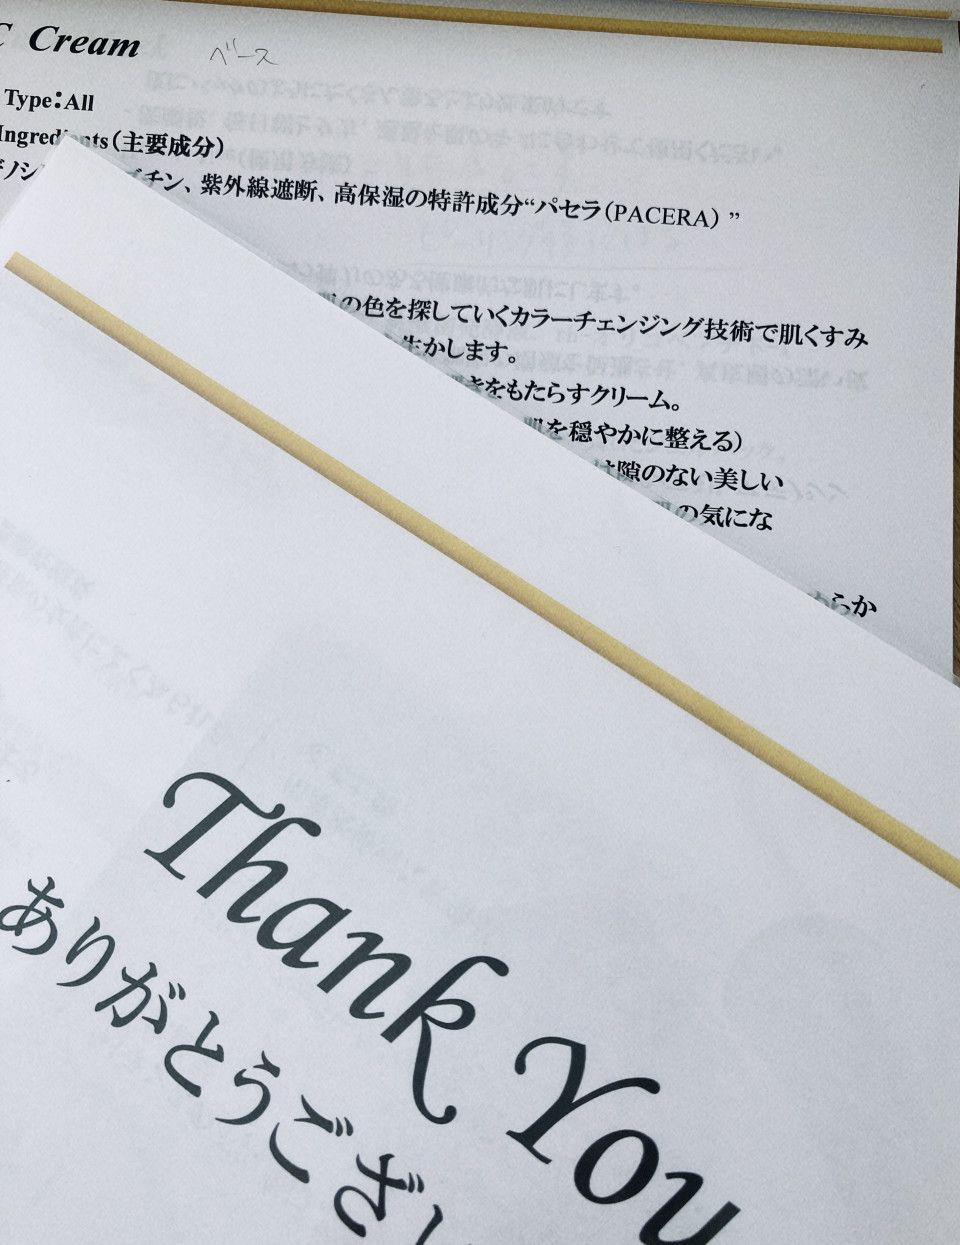 C Cream ベース
Type：All
Ingredients（主要成分）
チン、紫外線遮断、高保湿の特許成分“パセラ（PACERA）”
の色を探していくカラーチェンジング技術で肌くすみ
生かします。
きをもたらすクリーム。
肌を穏やかに整える）
は隙のない美しい
肌の気にな
らか
Thank You
ありがとうござ